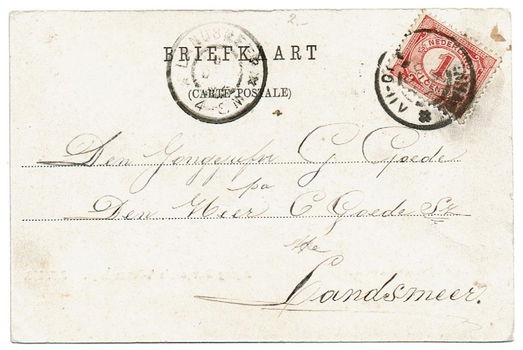 2.-
BRIEFKAART
(CARTE POSTALE)
NEDERLAND
1
CENT
Den Jongejufvr G Goede
pa
Den Heer C Goede Sr
te
Landsmeer.